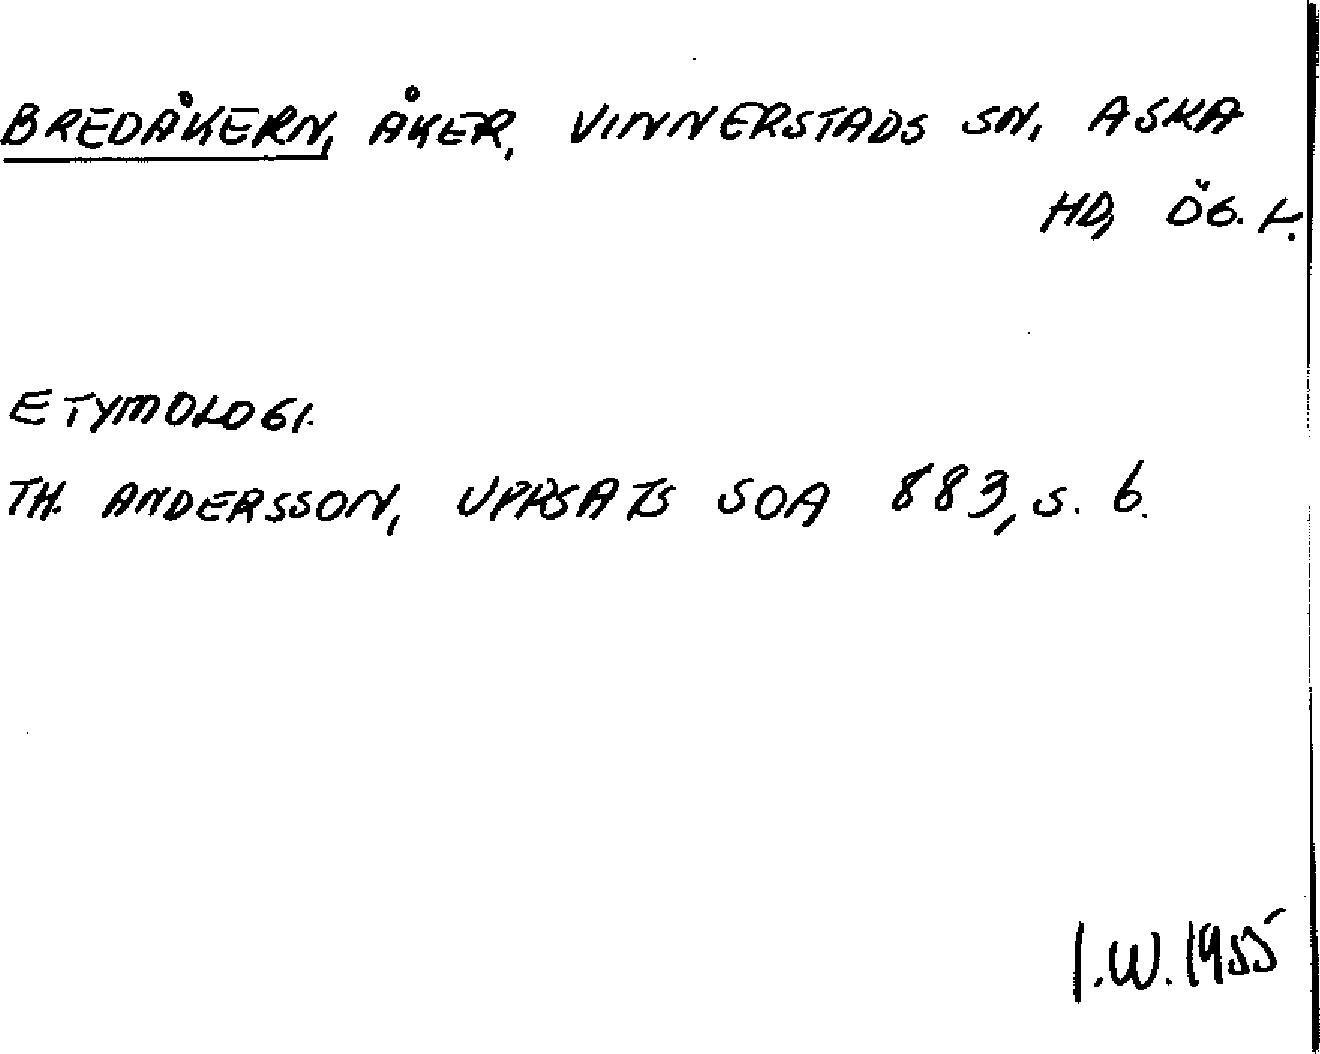 BREDÅKERN, ÅKER, VINNERSTADS SN, ASKA
HD, ÖG. L.
ETYMOLOGI.
TH. ANDERSSON, UPPSATS SOA 883, S. 6.
I.W. 1955